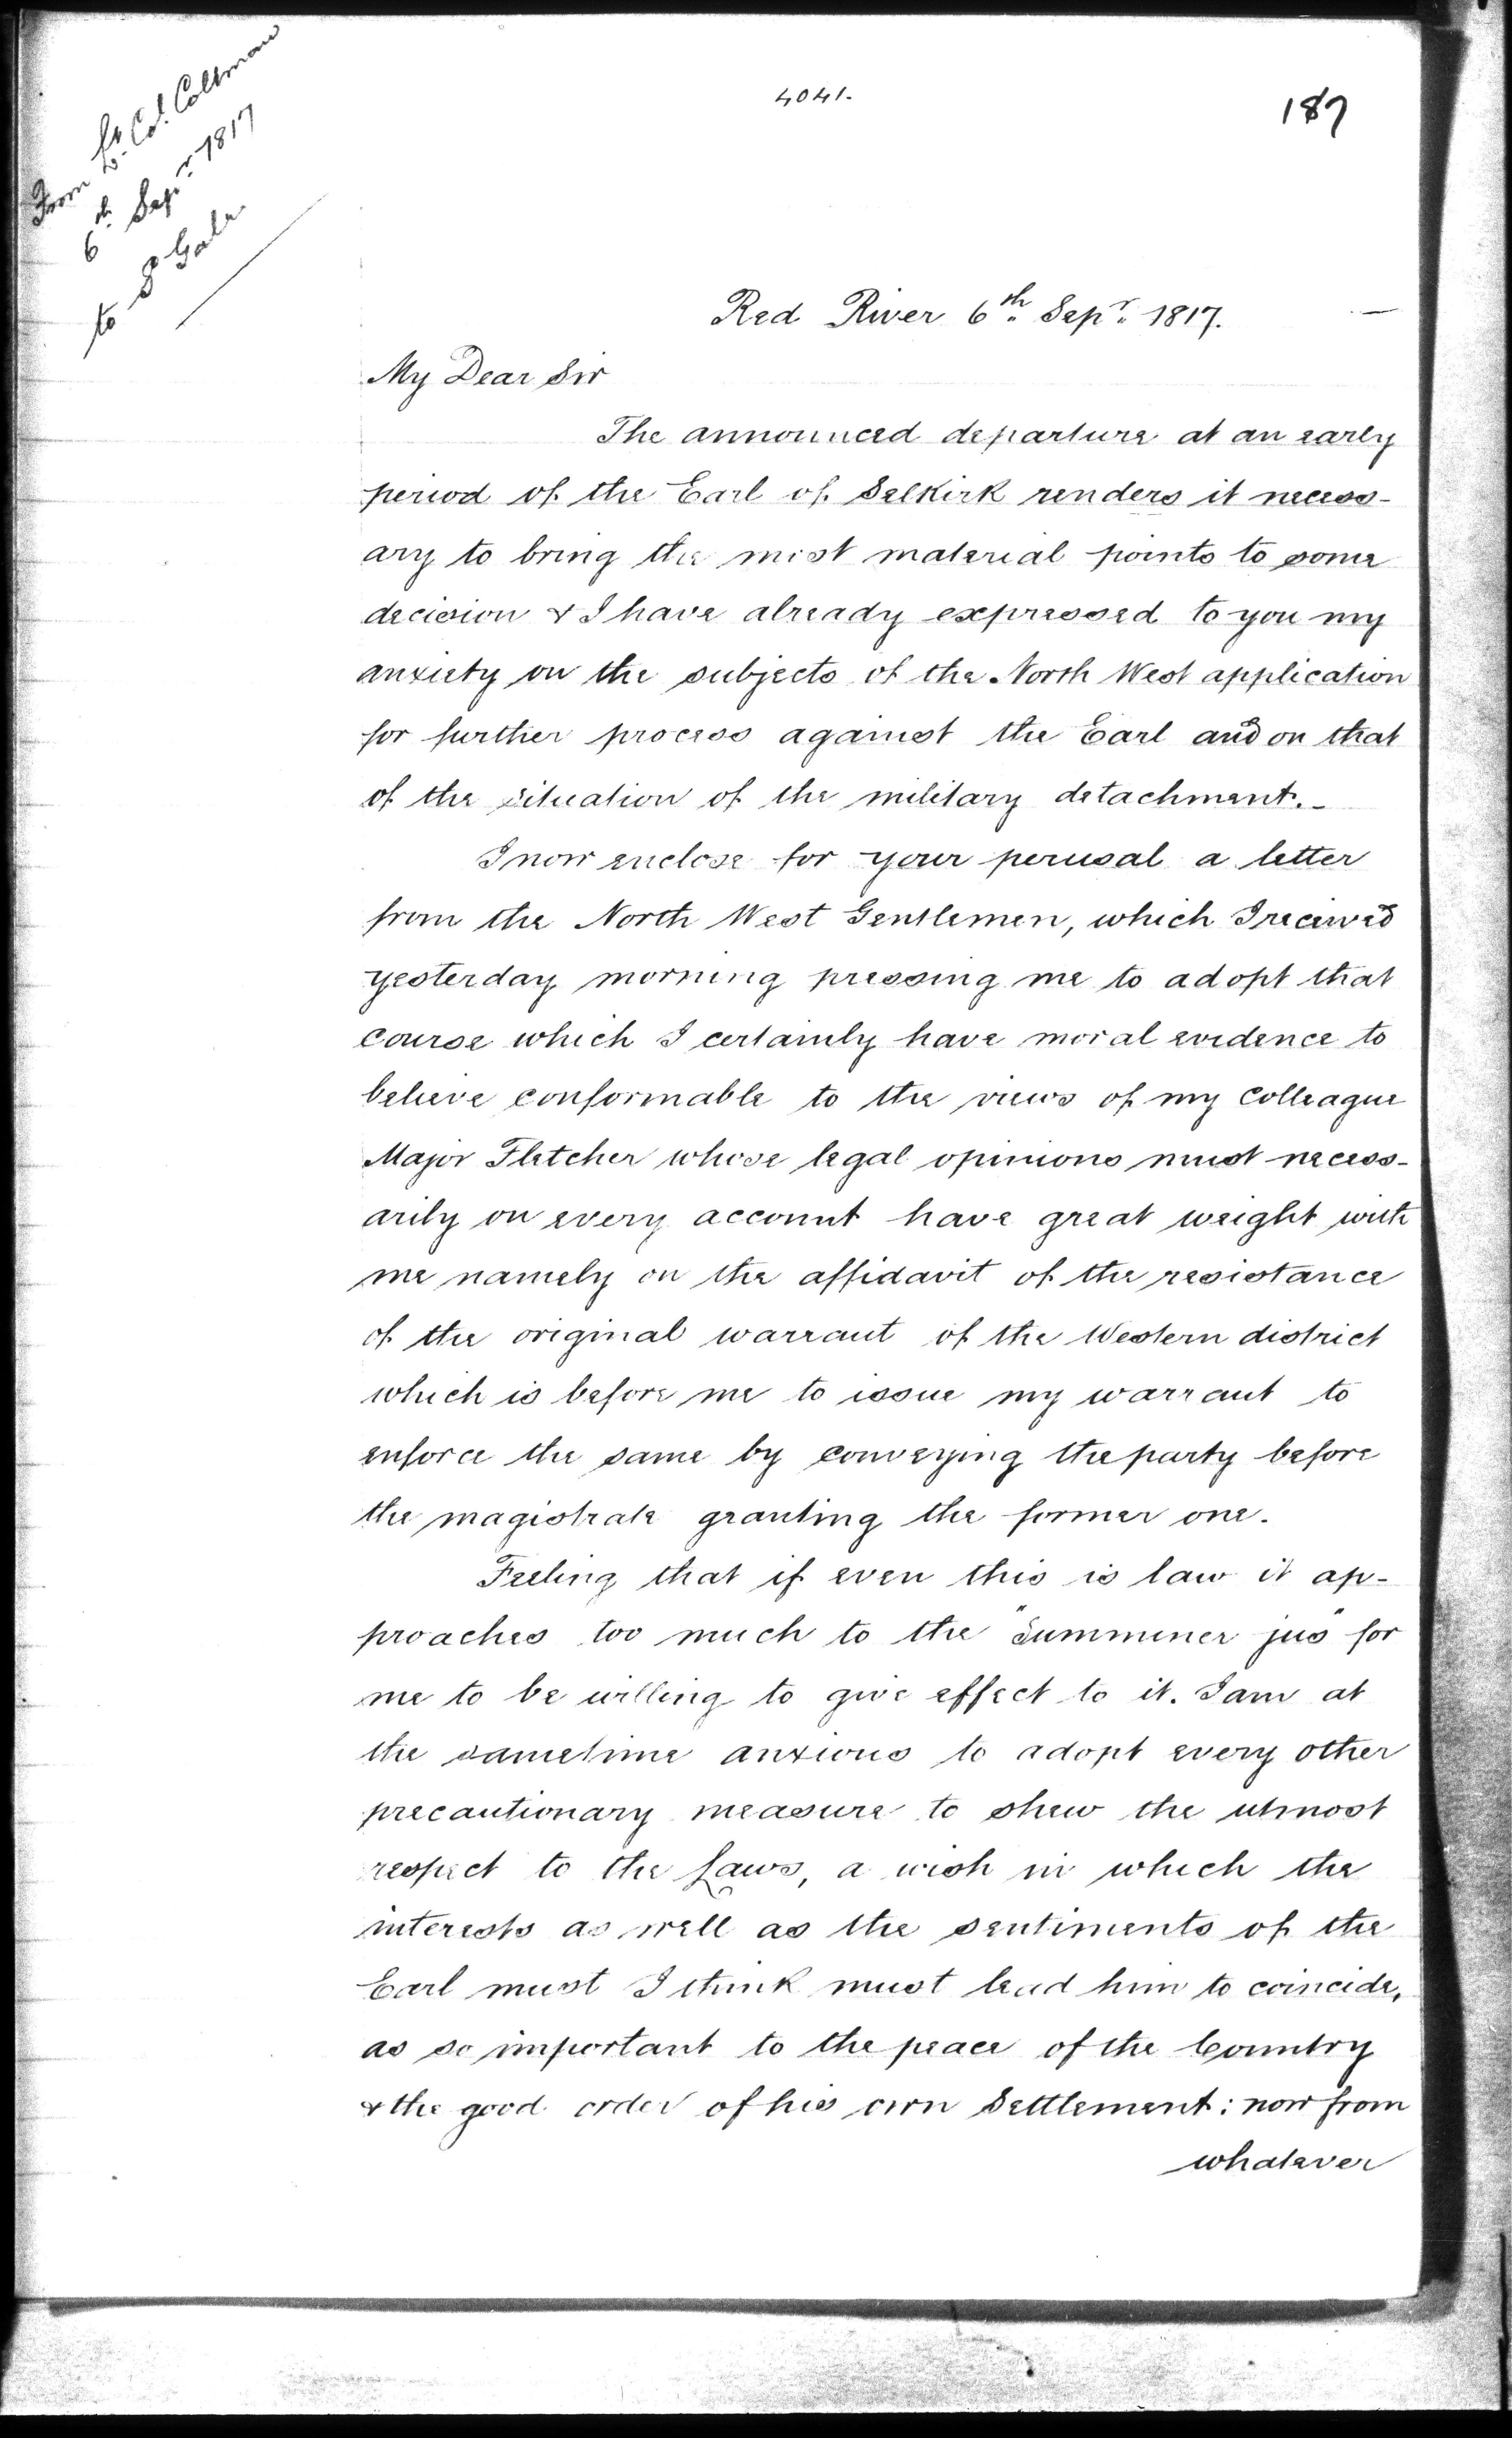 4041.
187
From Lt. Col. Coltman
6th. Sepr. 1817
to S Gale
Red River 6th. Sepr. 1817.
My Dear Sir
The announced departure at an early
period of the Earl of Selkirk renders it necess-
ary to bring the most material points to some
decision & I have already expressed to you my
anxiety on the subjects of the North West application
for further process against the Earl and on that
of the situation of the military detachment.-
I now enclose for your perusal a letter
from the North West Gentlemen, which I received
yesterday morning pressing me to adopt that
course which I certainly have moral evidence to
believe conformable to the views of my Colleague
Major Fletcher whose legal opinions must necess-
arily on every account have great weight with
me namely on the affidavit of the resistance
of the original warrant of the Western district
which is before me to issue my warrant to
enforce the same by conveying the party before
the magistrate granting the former one.
Feeling that if even this is law it ap-
proaches too much to the "Summiner jus" for
me to be willing to give effect to it. I am at
the sametime anxious to adopt every other
precautionary measure to shew the utmost
respect to the Laws, a wish in which the
interests as well as the sentiments of the
Earl must I think must lead him to coincide,
as so important to the peace of the Country
& the good order of his own Settlement: now from
whatever